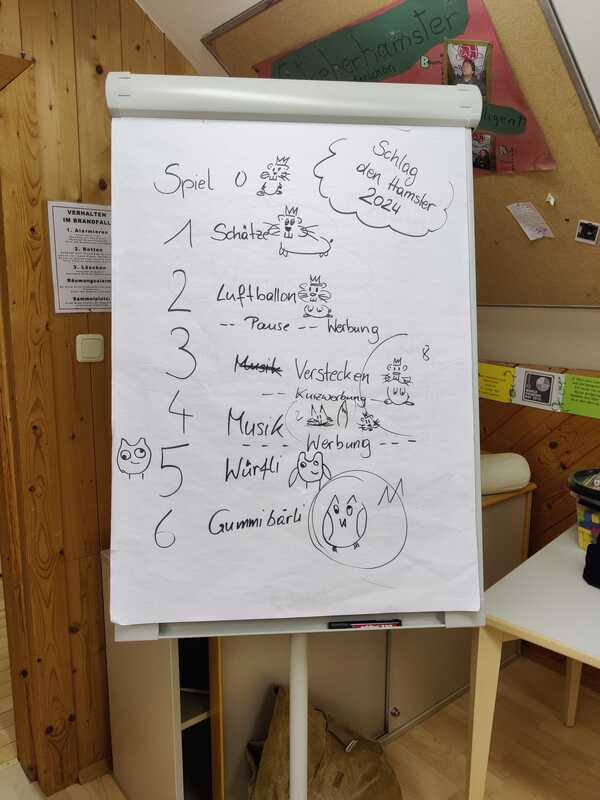 Streberhamster
Schlag
den Hamster
2024
Spiel 0
1 Schätze
2 Luftballon
-- Pause -- Werbung
3 Musik Verstecken 8
-- Kurzwerbung
4 Musik
-- Werbung ---
5 Würfli
6 Gummibärli
VERHALTEN
IM BRANDFALL
1. Alarmieren
2. Retten
3. Löschen
Räumungsalarm
Sammelplatz